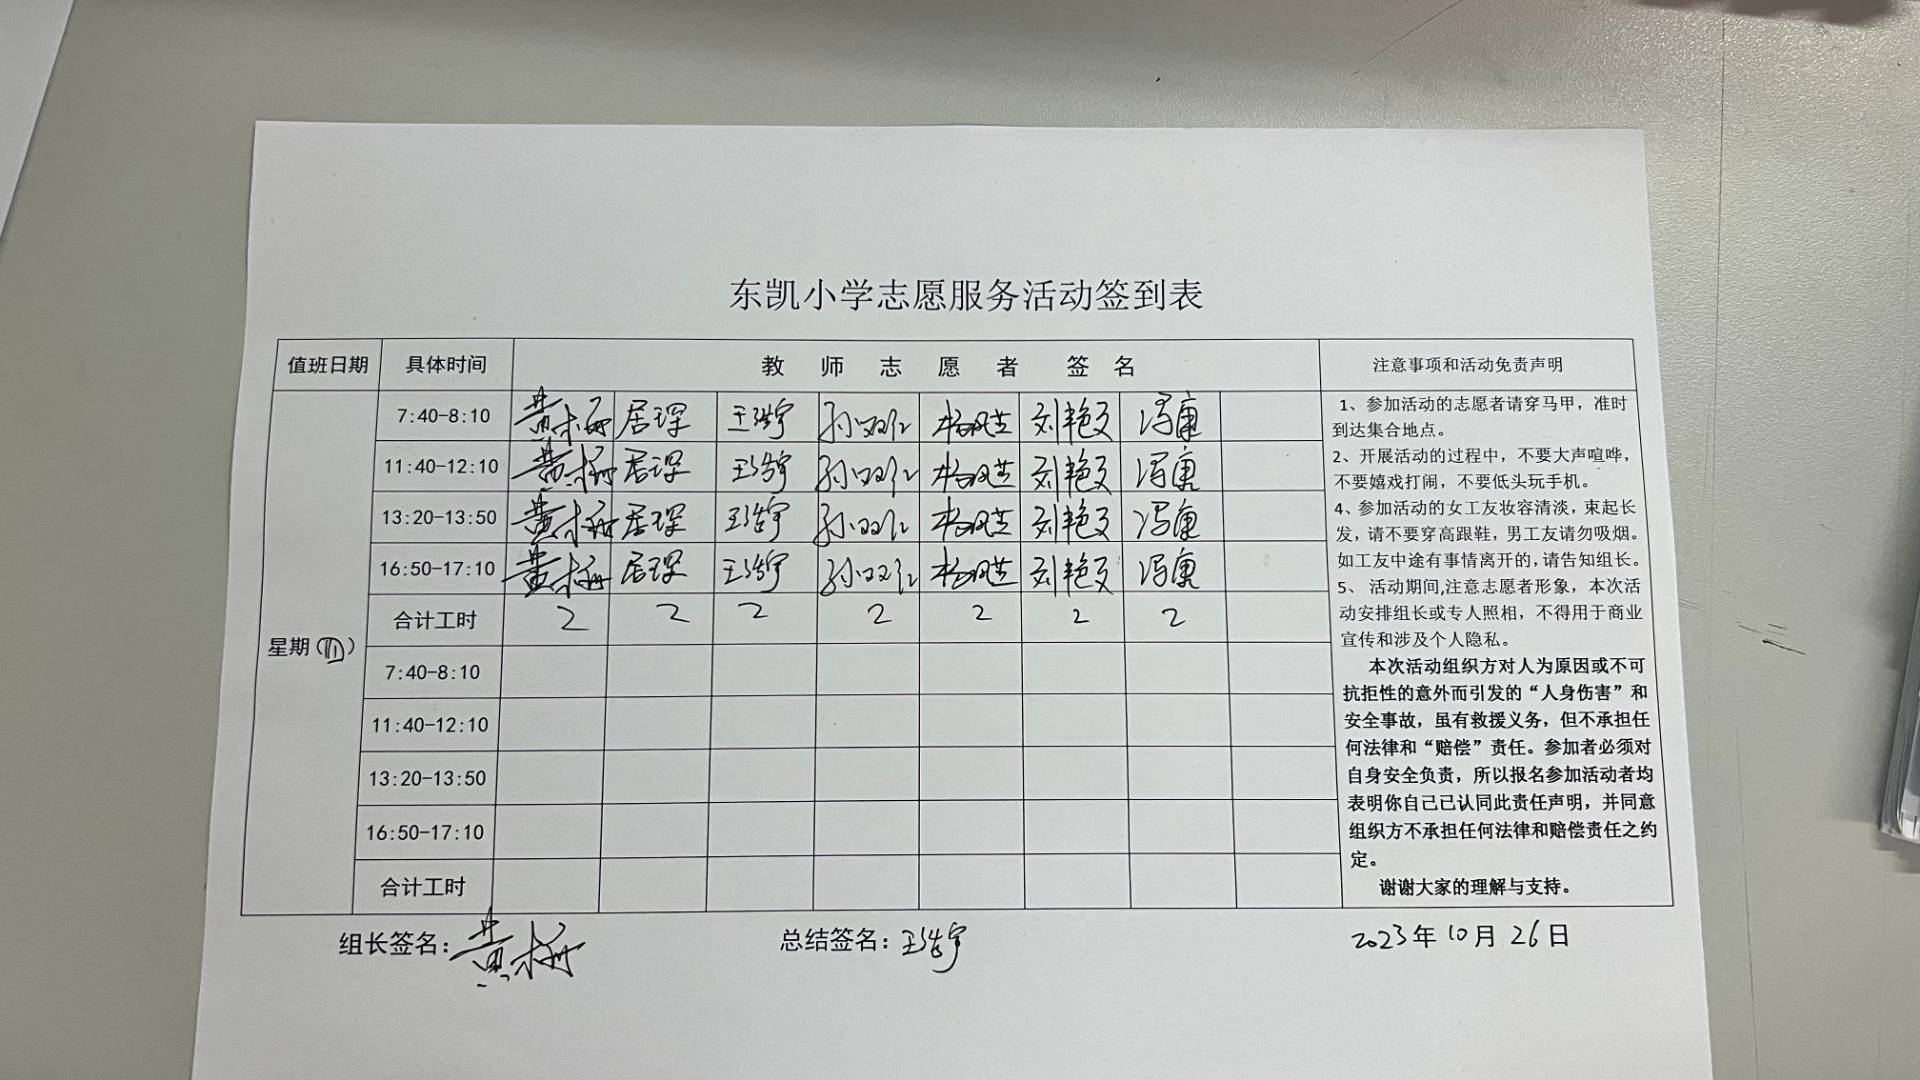 东凯小学志愿服务活动签到表
值班日期 具体时间 教师志愿者签名 注意事项和活动免责声明
7:40-8:10 居琛 王浩宇 刘艳文 冯康
11:40-12:10 居琛 王浩宇 刘艳文 冯康
13:20-13:50 居琛 王浩宇 刘艳文 冯康
16:50-17:10 居琛 王浩宇 刘艳文 冯康
合计工时 2 2 2 2 2 2 2
星期(四)
7:40-8:10
11:40-12:10
13:20-13:50
16:50-17:10
合计工时
1、参加活动的志愿者请穿马甲，准时
到达集合地点。
2、开展活动的过程中，不要大声喧哗，
不要嬉戏打闹，不要低头玩手机。
4、参加活动的女工友妆容清淡，束起长
发，请不要穿高跟鞋，男工友请勿吸烟。
如工友中途有事情离开的，请告知组长。
5、 活动期间,注意志愿者形象，本次活
动安排组长或专人照相，不得用于商业
宣传和涉及个人隐私。
本次活动组织方对人为原因或不可
抗拒性的意外而引发的“人身伤害”和
安全事故，虽有救援义务，但不承担任
何法律和“赔偿”责任。参加者必须对
自身安全负责，所以报名参加活动者均
表明你自己已认同此责任声明，并同意
组织方不承担任何法律和赔偿责任之约
定。
谢谢大家的理解与支持。
组长签名： 总结签名：王浩宇 2023年10月26日